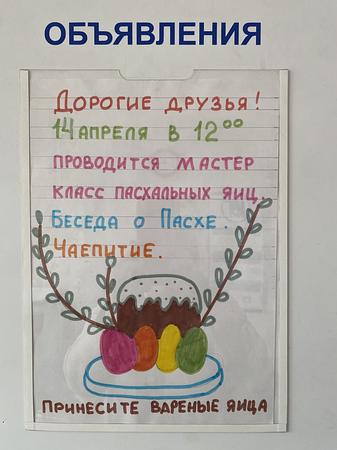 ОБЪЯВЛЕНИЯ
ДОРОГИЕ ДРУЗЬЯ!
14 АПРЕЛЯ В 12⁰⁰
ПРОВОДИТСЯ МАСТЕР
КЛАСС ПАСХАЛЬНЫХ ЯИЦ.
БЕСЕДА О ПАСХЕ.
ЧАЕПИТИЕ.
ПРИНЕСИТЕ ВАРЕНЫЕ ЯИЦА